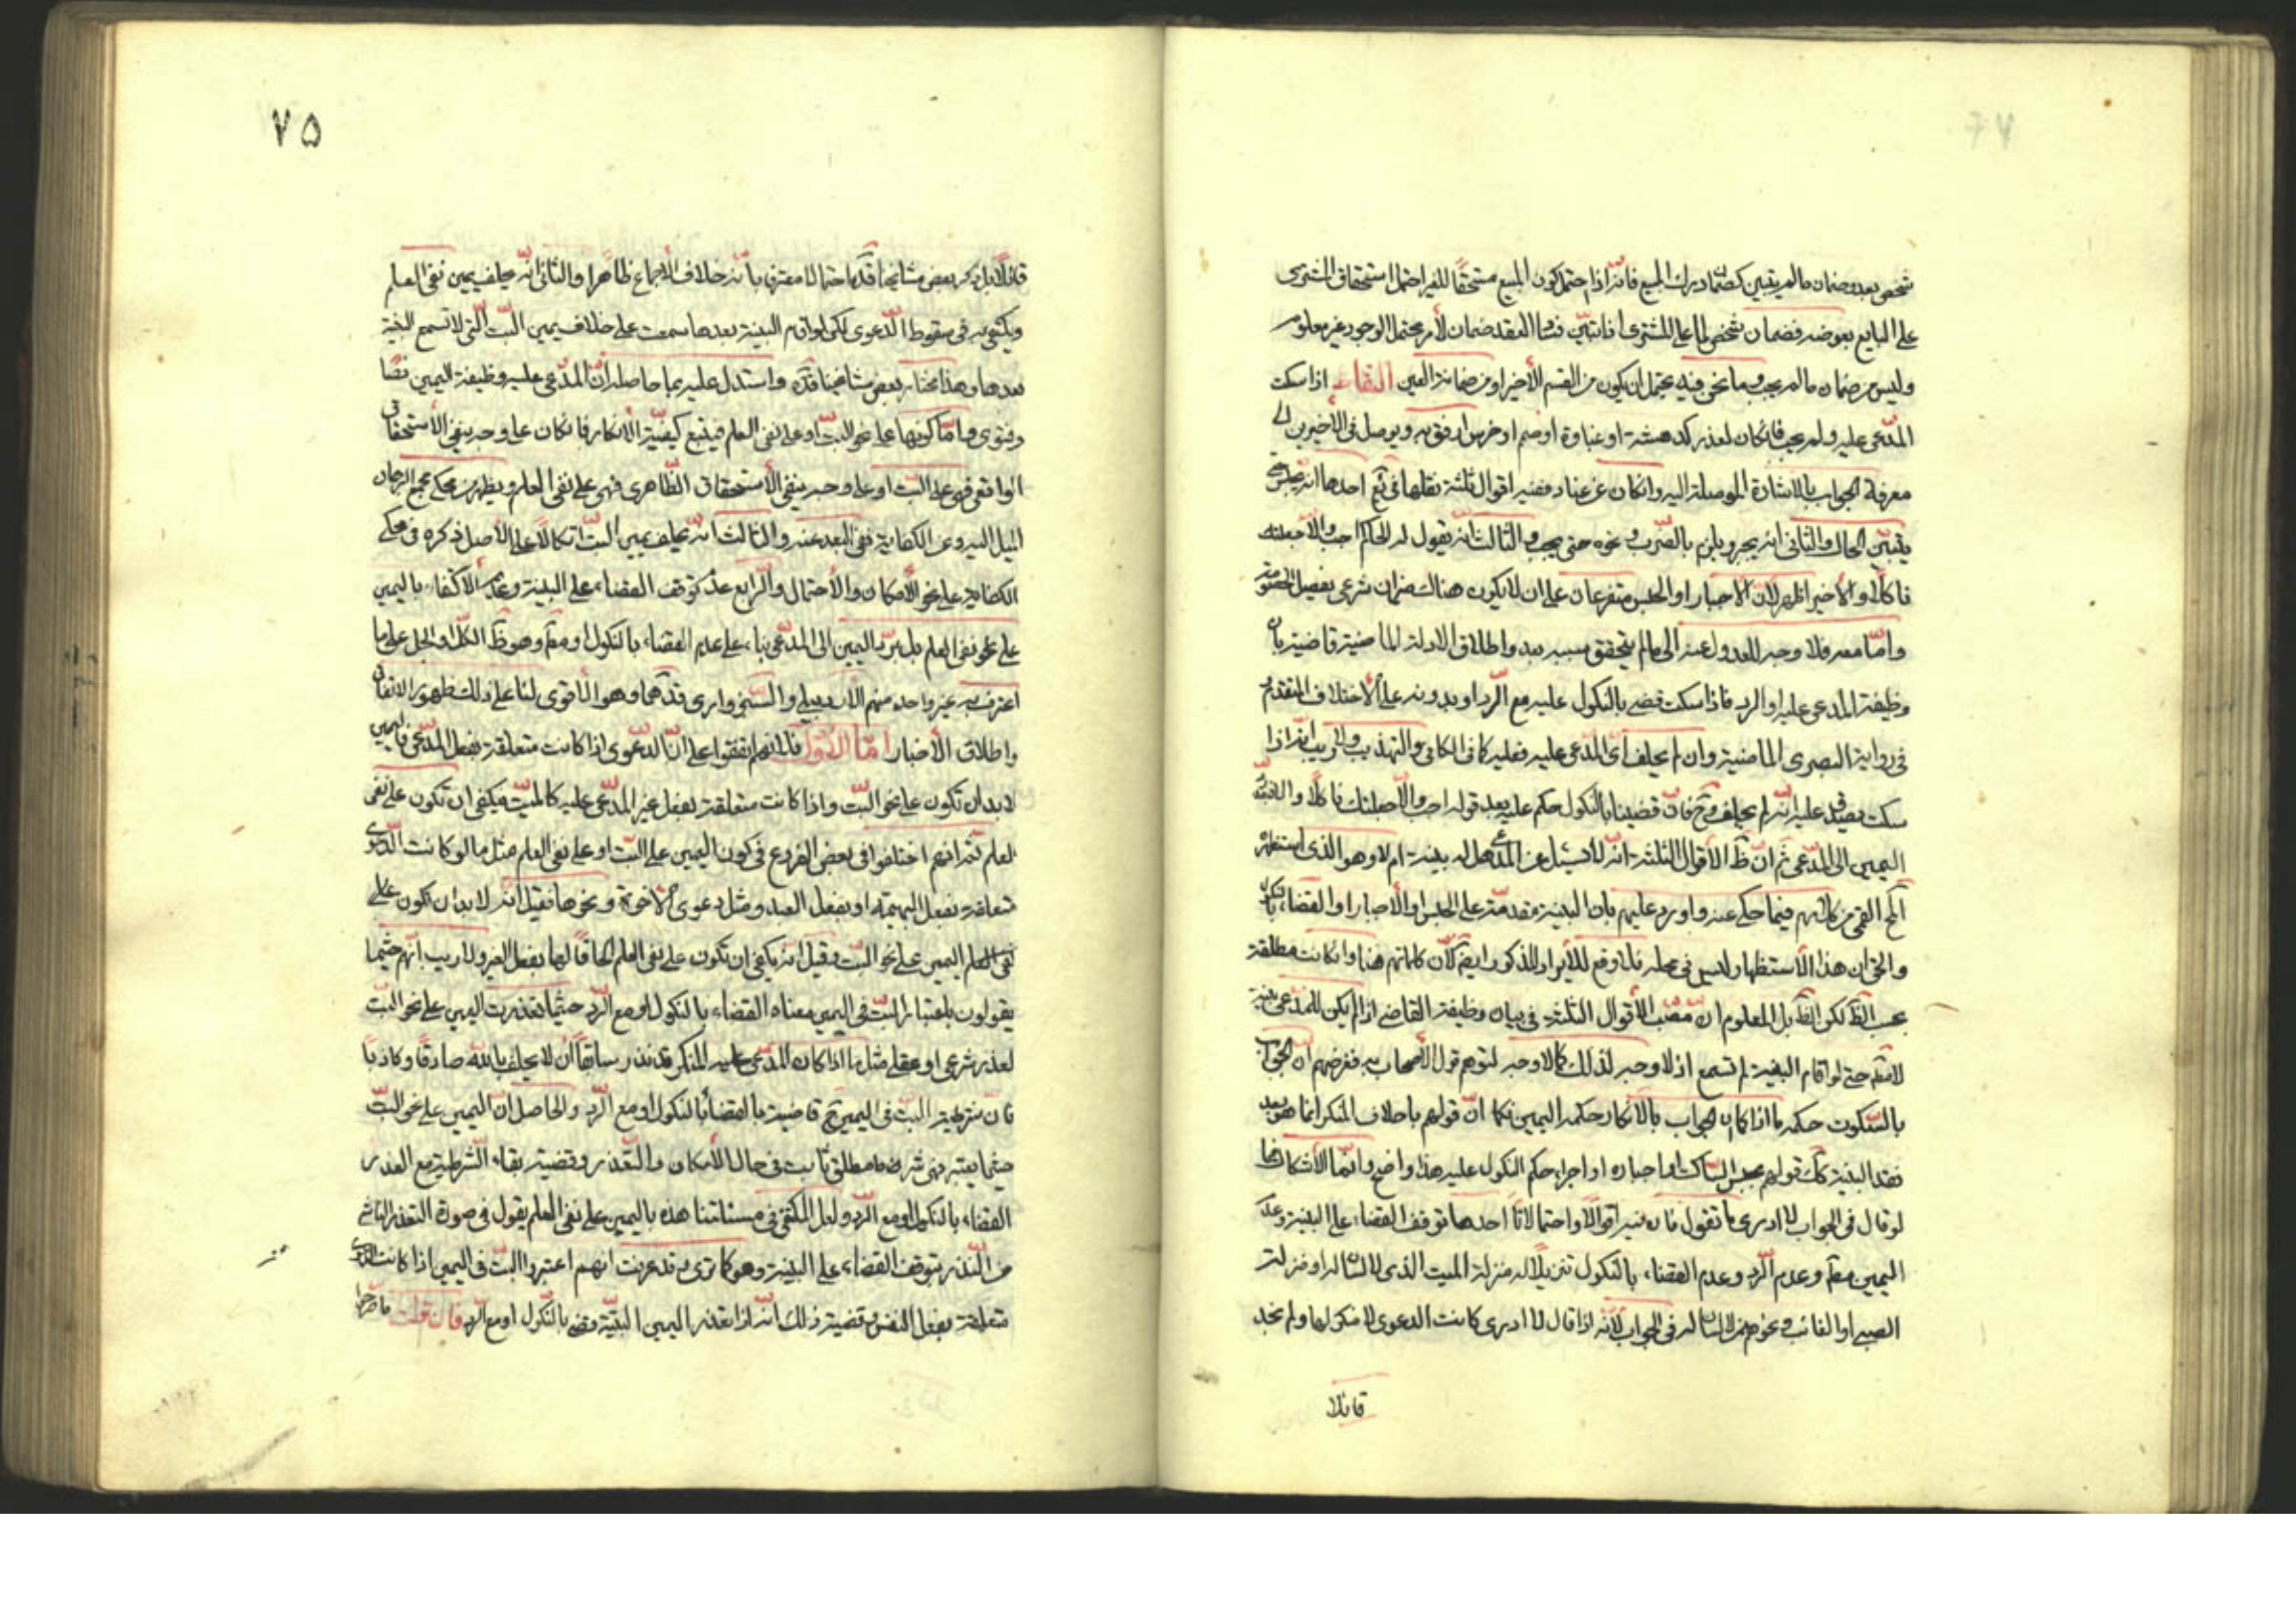 شخص بعده وضمان ما لم يتبين كضمان درك المبيع فانه اذا احتمل كون المبيع مستحقا للغير احتمل استحقاق المشترى
على البايع بعوضه فضمان شخص لما على المشترى اذا تبين فساد العقد ضمان لأمر محتمل الوجود غير معلوم
وليس من ضمان ما لم يجب وما نحن فيه يحتمل ان يكون من القسم الأخير او من ضمانة العين التقاء اذا سكت
المدعى عليه ولم يجب فان كان لعذر كدهشة او غباوة او صم او خرس ارفق به ويوصل فى الأخيرين الى
معرفة الجواب بالاشارة الموصلة اليه وان كان عن عناد ففيه اقوال ثلثة نقلها فى يع احدها انه يحبس حتى
يتبين الحال والثانى انه يجبر ويلزم بالضرب ونحوه حتى يجيب والثالث انه يقول له الحاكم اجب والا جعلتك
ناكلا والأخير اظهر لان الاجبار او الحبس متفرعان على ان لا يكون هناك ميزان شرعى يفصل الخصومة
واما معه فلا وجه للعدول عنه الى ما لم يتحقق سببه بعد واطلاق الادلة الماضية قاضية بان
وظيفة المدعى عليه او الرد فاذا سكت قضى بالنكول عليه مع الرد او بدونه على الاختلاف المتقدم
فى رواية البصرى الماضية وان لم يحلف اى المدعى عليه فعليه كما فى الكافى والتهذيب ولا ريب انه اذا
سكت يصدق عليه انه لم يحلف وح فان قضينا بالنكول حكم عليه بعد قوله اجب والا جعلتك ناكلا والا فترد
اليمين الى المدعى ثم ان ظ الاقوال الثلثة انه لا يسئل عن المدعى هل له بينة ام لا وهو الذى استظهره
المح القمى من كلماتهم فيما حكى عنه واورد عليهم بان البينة مقدمة على الحبس او الأجبار او القضاء بالنكول
والحق ان هذا الأستظهار ليس فى محله فلا وقع للأيراد المذكور ايضا لان كلماتهم هنا وان كانت مطلقة
بحسب الظ لكن الظ بل المعلوم ان مصب الأقوال الثلثة فى بيان وظيفة القاضى اذا لم يكن للمدعى بينة
لا مط حتى لو اقام البينة لم تسمع اذ لا وجه لذلك كما لا وجه لتوهم قول الأصحاب به فغرضهم ان الجواب
بالسكوت حكمه ما اذا كان الجواب بالانكار حكمه اليمين فكما ان قولهم باحلاف المنكر انما هو بعد
فقد البينة كك قولهم بحبس الساكت او اجباره او اجراء حكم النكول عليه هذا واضح وانما الاشكال فيما
لو قال فى الجواب لا ادرى ما تقول فان فيه اقوالا واحتمالات احدها توقف القضاء على البينة وعدم
اليمين معه وعدم الرد وعدم القضاء بالنكول تنزيلا له منزلة الميت الذى لا لسان له او منزلة
الصبى او الغائب ونحوهم ممن لا لسان له فى الجواب لأنه اذا قال لا ادرى كانت الدعوى لا منكر لها ولم نجد
قائلا
٧۵
قائلا بل ذكر بعض مشايخنا قده احتمالا معترفا بانه خلاف الأجماع ظاهرا والثانى انه يحلف يمين نفى العلم
ويكتفى به فى سقوط الدعوى لكن لو اقام البينة بعدها سمعت على خلاف يمين البت التى لا تسمع البينة
بعدها وهذا مختار بعض مشايخنا قده واستدل عليه بما حاصله ان المدعى عليه وظيفة اليمين نصا
وفتوى واما كونها على نحو البت او على نفى العلم فيتبع كيفية الأنكار فان كان على وجه ينفى الأستحقاق
الواقعى فهى على البت او على وجه ينفى الأستحقاق الظاهرى فهى على نفى العلم ويظهر من محكى مجمع البرهان
الميل اليه وعن الكفاية نفى البعد عنه والثالث انه يحلف يمين البت اتكالا على الأصل ذكره فى محكى
الكفاية على نحو الأمكان والأحتمال والرابع عدم توقف القضاء على البينة وعدم الاكتفاء باليمين
على نحو نفى العلم بل يرد اليمين الى المدعى بناء على عدم القضاء بالنكول او معه وهو ظ الكل او الجل على ما
اعترف به غير واحد منهم الأردبيلى والسبزوارى قدهما وهو الأقوى لنا على ذلك ظهور الاتفاق
واطلاق الأخبار اما الأول فلانهم اتفقوا على ان الدعوى اذا كانت متعلقة بفعل المدعى فاليمين
لا بد ان تكون على نحو البت واذا كانت متعلقة بفعل غير المدعى عليه كالميت فيكفى ان تكون على نفى
العلم ثم انهم اختلفوا فى بعض الفروع فى كون اليمين على البت او على نفى العلم مثل ما لو كانت الدعوى
متعلقة بفعل البهيمة او بفعل العبد ومثل دعوى الأخوة ونحوها فقيل انه لا بد ان تكون على
نفى العلم اليمين على نحو البت وقيل انه يكفى ان تكون على نفى العلم الحاقا لها بفعل الغير ولا ريب انهم حيثما
يقولون باعتبار البت فى اليمين معناه القضاء بالنكول او مع الرد حيثما تعذرت اليمين على نحو البت
لعذر شرعى او عقلى مثل ما اذا كان المدعى عليه المنكر قد نذر سابقا ان لا يحلف بالله صادقا وكاذبا
فان شرطية البت فى اليمين ح قاضية بالقضاء بالنكول او مع الرد والحاصل ان اليمين على نحو البت
حيثما يعتبر فهى شرط مطلق ثابت فى حال الأمكان والتعذر وقضية بقاء الشرطية مع العذر
القضاء بالنكول او مع الرد ولعل المكتفى فى مسئلتنا هذه باليمين على نفى العلم يقول فى صورة التعذر الناشى
من النذر بتوقف القضاء على البينة وهو كما ترى وقد عرفت انهم اعتبروا البت فى اليمين اذا كانت الدعوى
متعلقة بفعل النفس وقضية ذلك انه اذا تعذر اليمين البتية قضى بالنكول او مع الرد فان قلت ما صرحوا